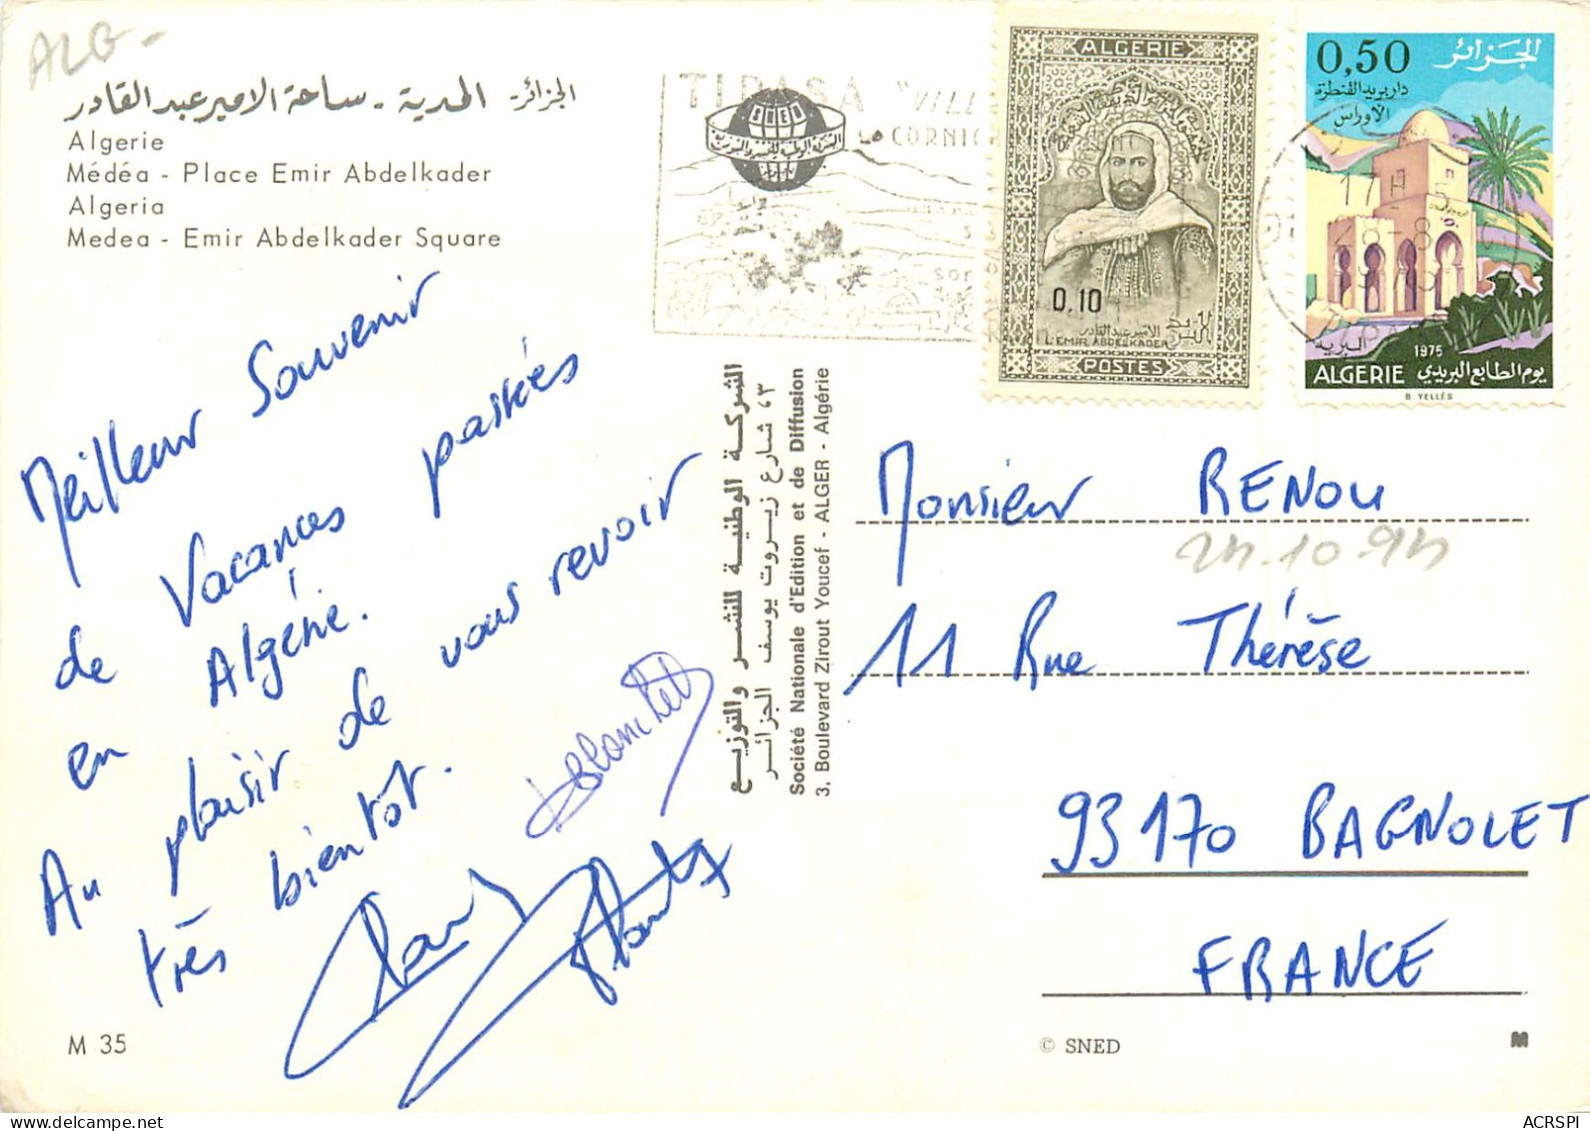 ALG-
الجزائر - المدية - ساحة الامير عبد القادر
Algerie
Médéa - Place Emir Abdelkader
Algeria
Medea - Emir Abdelkader Square
TIPASA "VILL
La CORNICH
SNED
ALGERIE
0,10
الامير عبد القادر
L'EMIR ABDELKADER
البريد
POSTES
0,50
الجزائر
دار بريد القنطرة
الأوراس
17H
28-8
البريد
1975
ALGERIE يوم الطابع البريدي
B. YELLÈS
Meilleur Souvenir
de Vacances passées
en Algérie.
Au plaisir de vous revoir
très bientôt.
الشركة الوطنية للنشر والتوزيع
٣، شارع زيروت يوسف الجزائر
Société Nationale d'Edition et de Diffusion
3, Boulevard Zirout Youcef - ALGER - Algérie
Monsieur RENOU
24.10.94
11 Rue Thérèse
93170 BAGNOLET
FRANCE
M 35
© SNED
M
ACRSPI